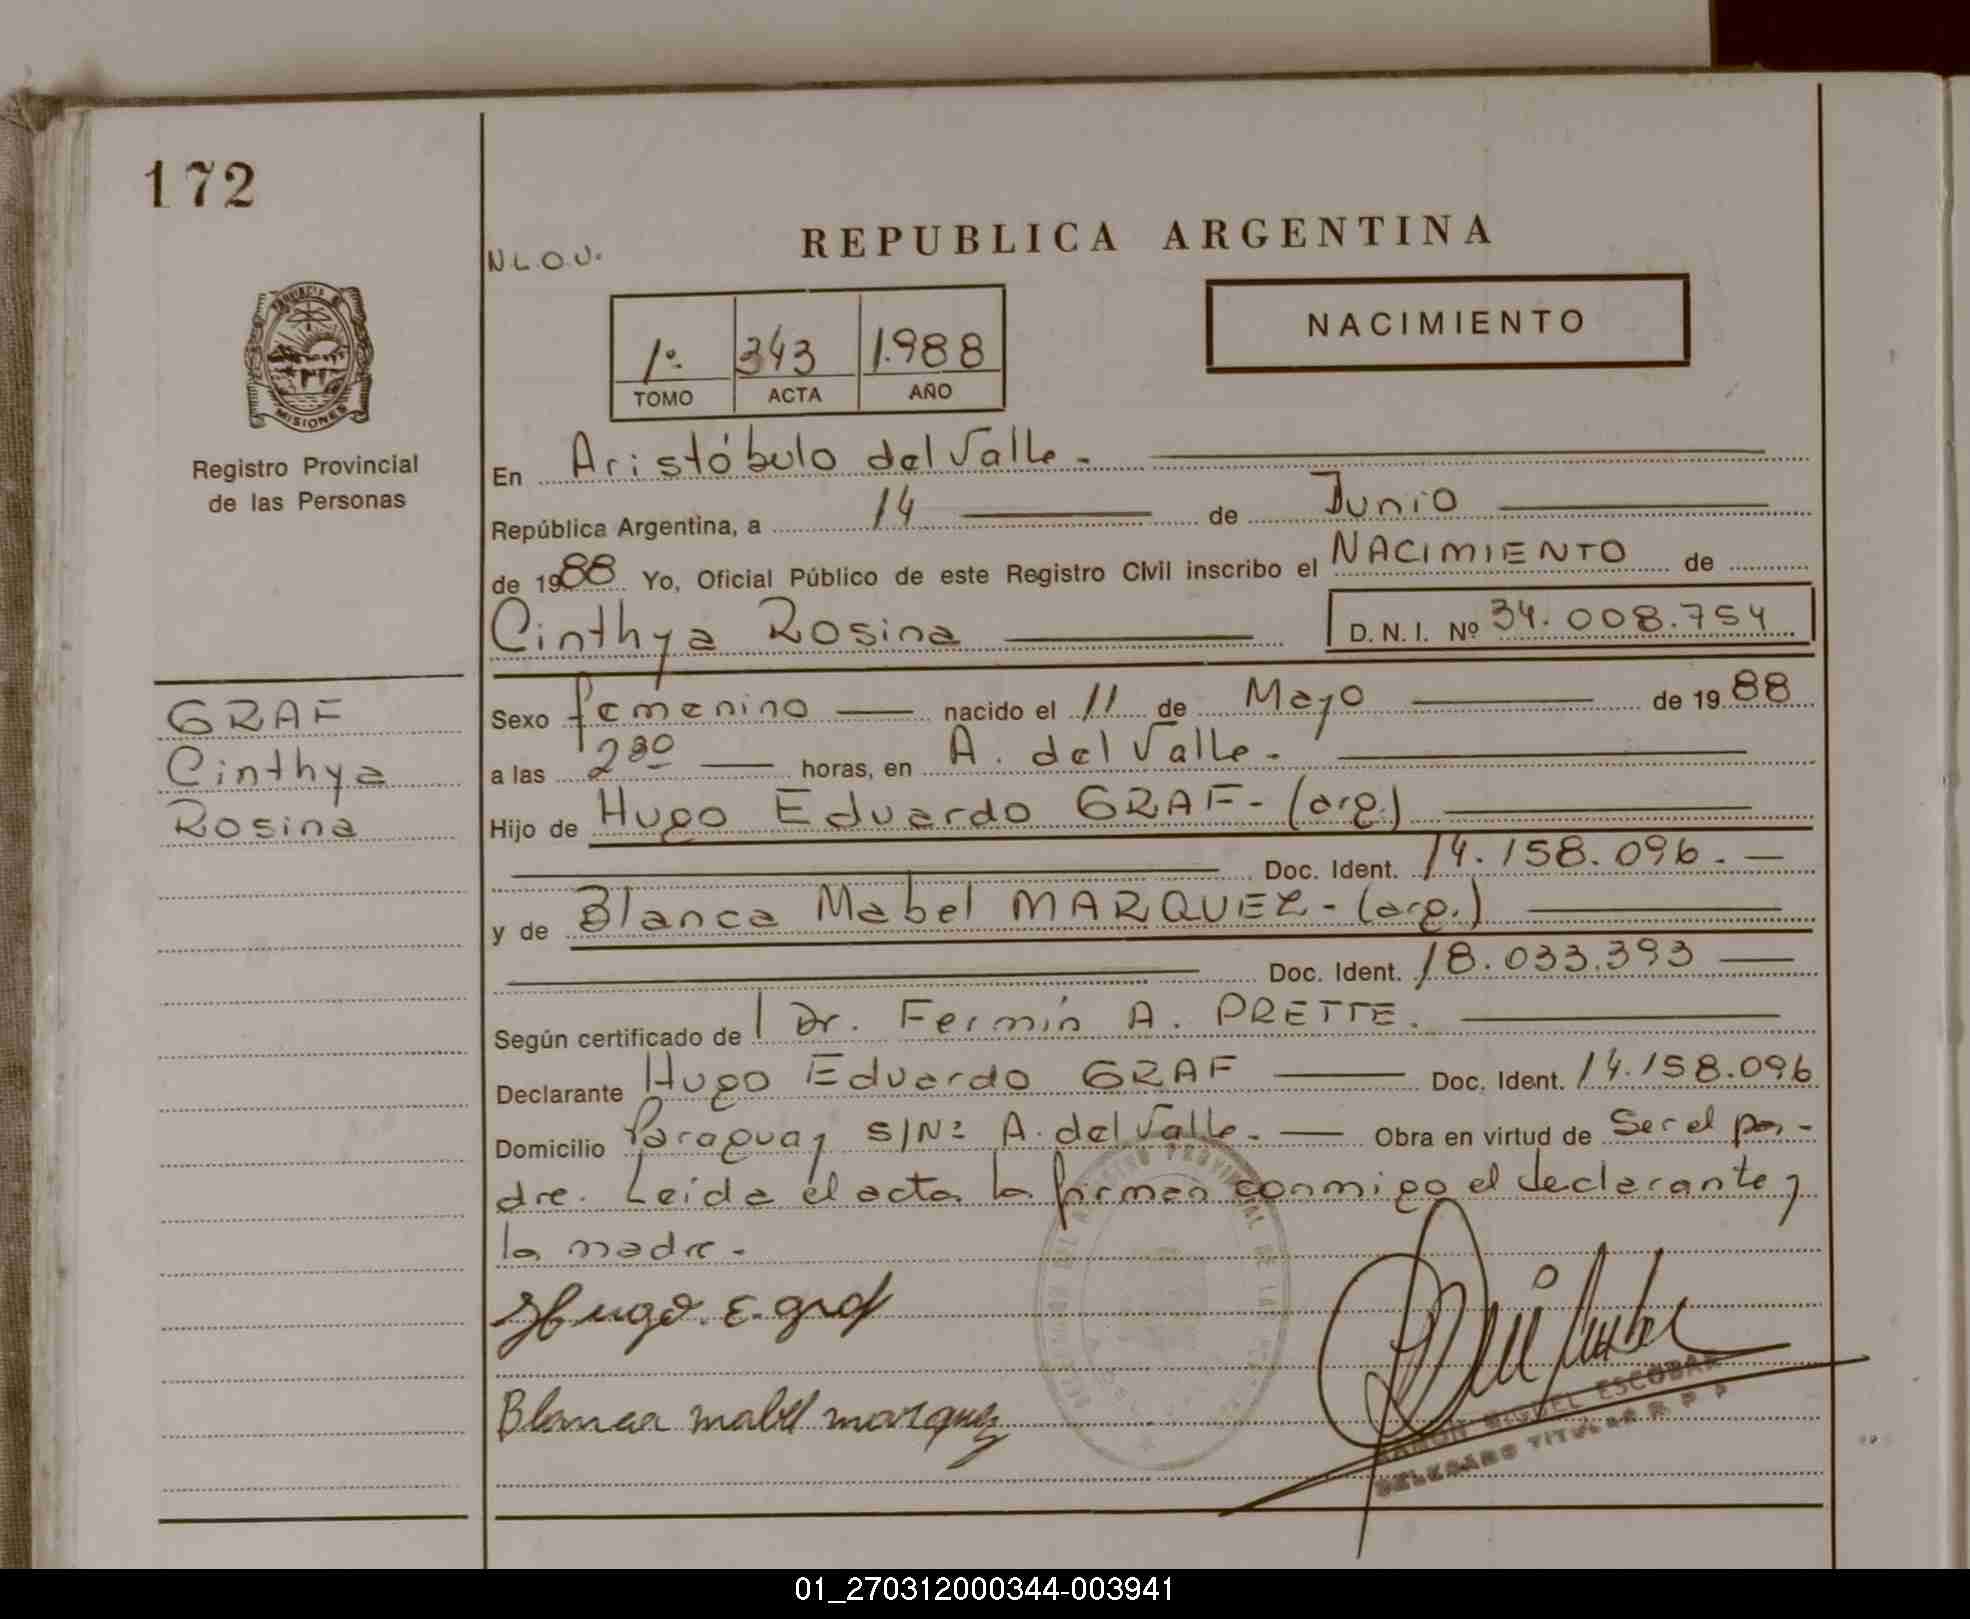 172
REPUBLICA ARGENTINA
N L.O.U.
NACIMIENTO
1º 343 1.988
TOMO ACTA AÑO
PROVINCIA DE
MISIONES
Registro Provincial
de las Personas
En Aristóbulo del Valle.
República Argentina, a 14 de Junio
de 1988 Yo, Oficial Público de este Registro Civil inscribo el NACIMIENTO de
Cinthya Rosina D.N.I. Nº 34.008.754
GRAF
Cinthya
Rosina
Sexo femenino nacido el 11 de Mayo de 1988
a las 2 30 horas, en A. del Valle.
Hijo de Hugo Eduardo GRAF - (arg.)
Doc. Ident. 14.158.096.
y de Blanca Mabel MARQUEZ - (arg.)
Doc. Ident. 18.033.393
Según certificado de Dr. Fermín A. PRETTE.
Declarante Hugo Eduardo GRAF Doc. Ident. 14.158.096
Domicilio Paraguay S/Nº A. del Valle. Obra en virtud de Ser el pa-
dre. Leida el acta la firman conmigo el declarante y
la madre.
Hugo. E. graf
Blanca mabel marquez
RAMON MIGUEL ESCOBAR
DELEGADO TITULAR R. P. P.
01_270312000344-003941